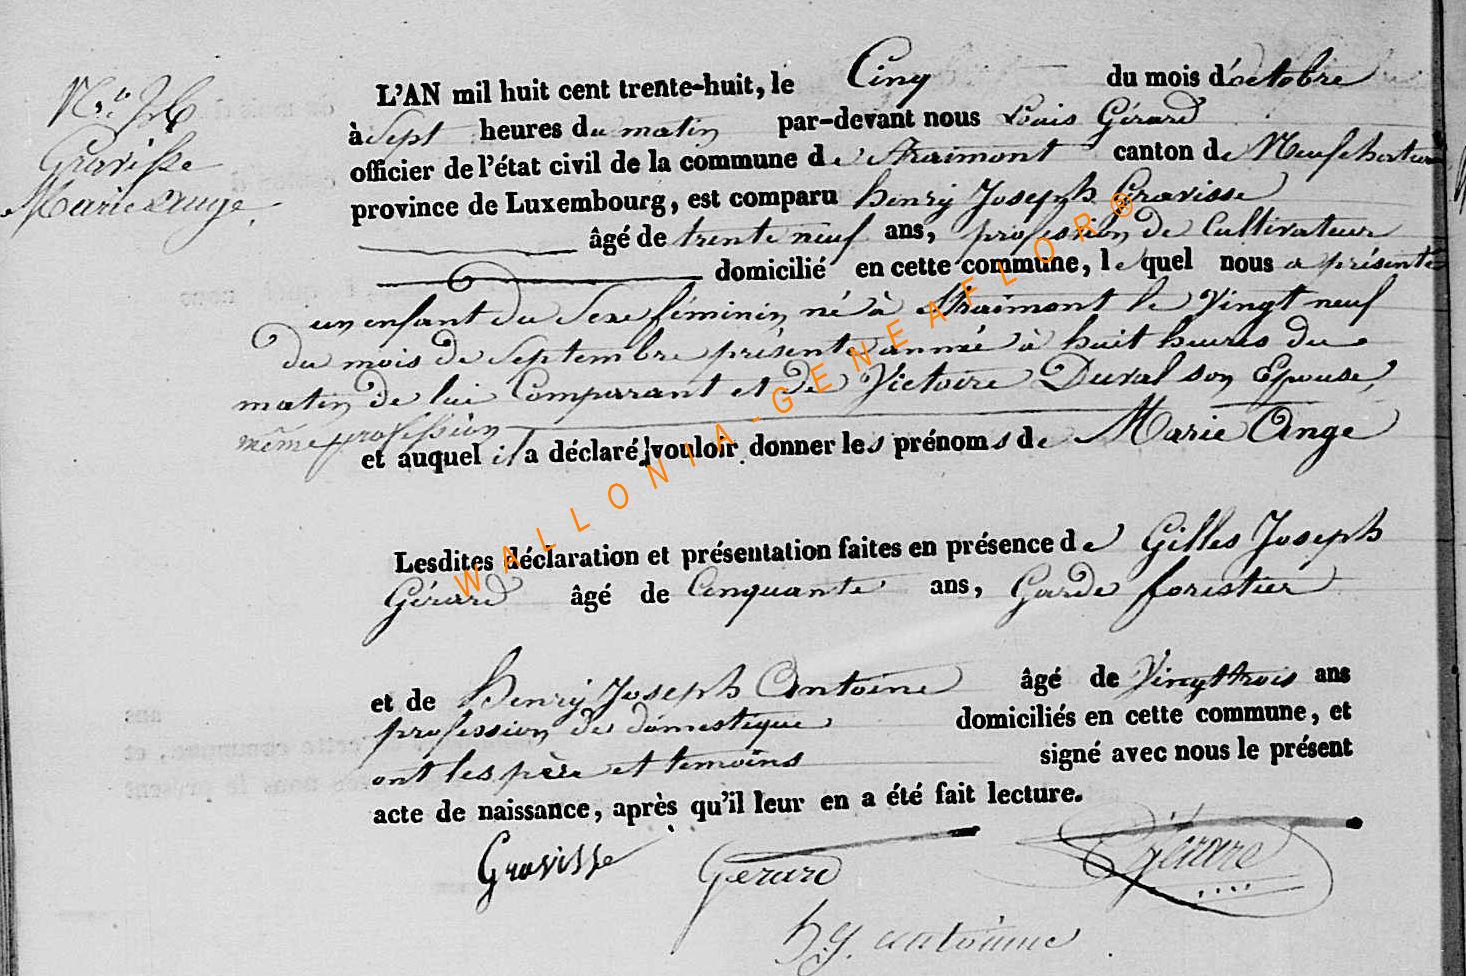 Gravisse
Marie Ange.
L'AN mil huit cent trente-huit, le Cinq du mois d'octobre
à Sept heures du matin par-devant nous Louis Gérard
officier de l'état civil de la commune de Straimont canton de Neufchateau
province de Luxembourg, est comparu henry Joseph Gravisse
âgé de trente neuf ans, profession de Cultivateur
domicilié en cette commune, lequel nous a présenté
un enfant du Sexe féminin né à Straimont le Vingt neuf
du mois de Septembre présente année à huit heures du
matin de lui Comparant et de Victoire Duval son Epouse,
même profession
et auquel il a déclaré vouloir donner les prénoms de Marie Ange
Lesdites déclaration et présentation faites en présence de Gilles Joseph
Gérard âgé de Cinquante ans, Garde forestier
et de henry Joseph Antoine âgé de Vingt trois ans
profession de domestique domiciliés en cette commune, et
ont les père et temoins signé avec nous le présent
acte de naissance, après qu'il leur en a été fait lecture.
Gravisse Gerard Gérard
h j. antoinne
WALLONIA-GENEAFLOR®